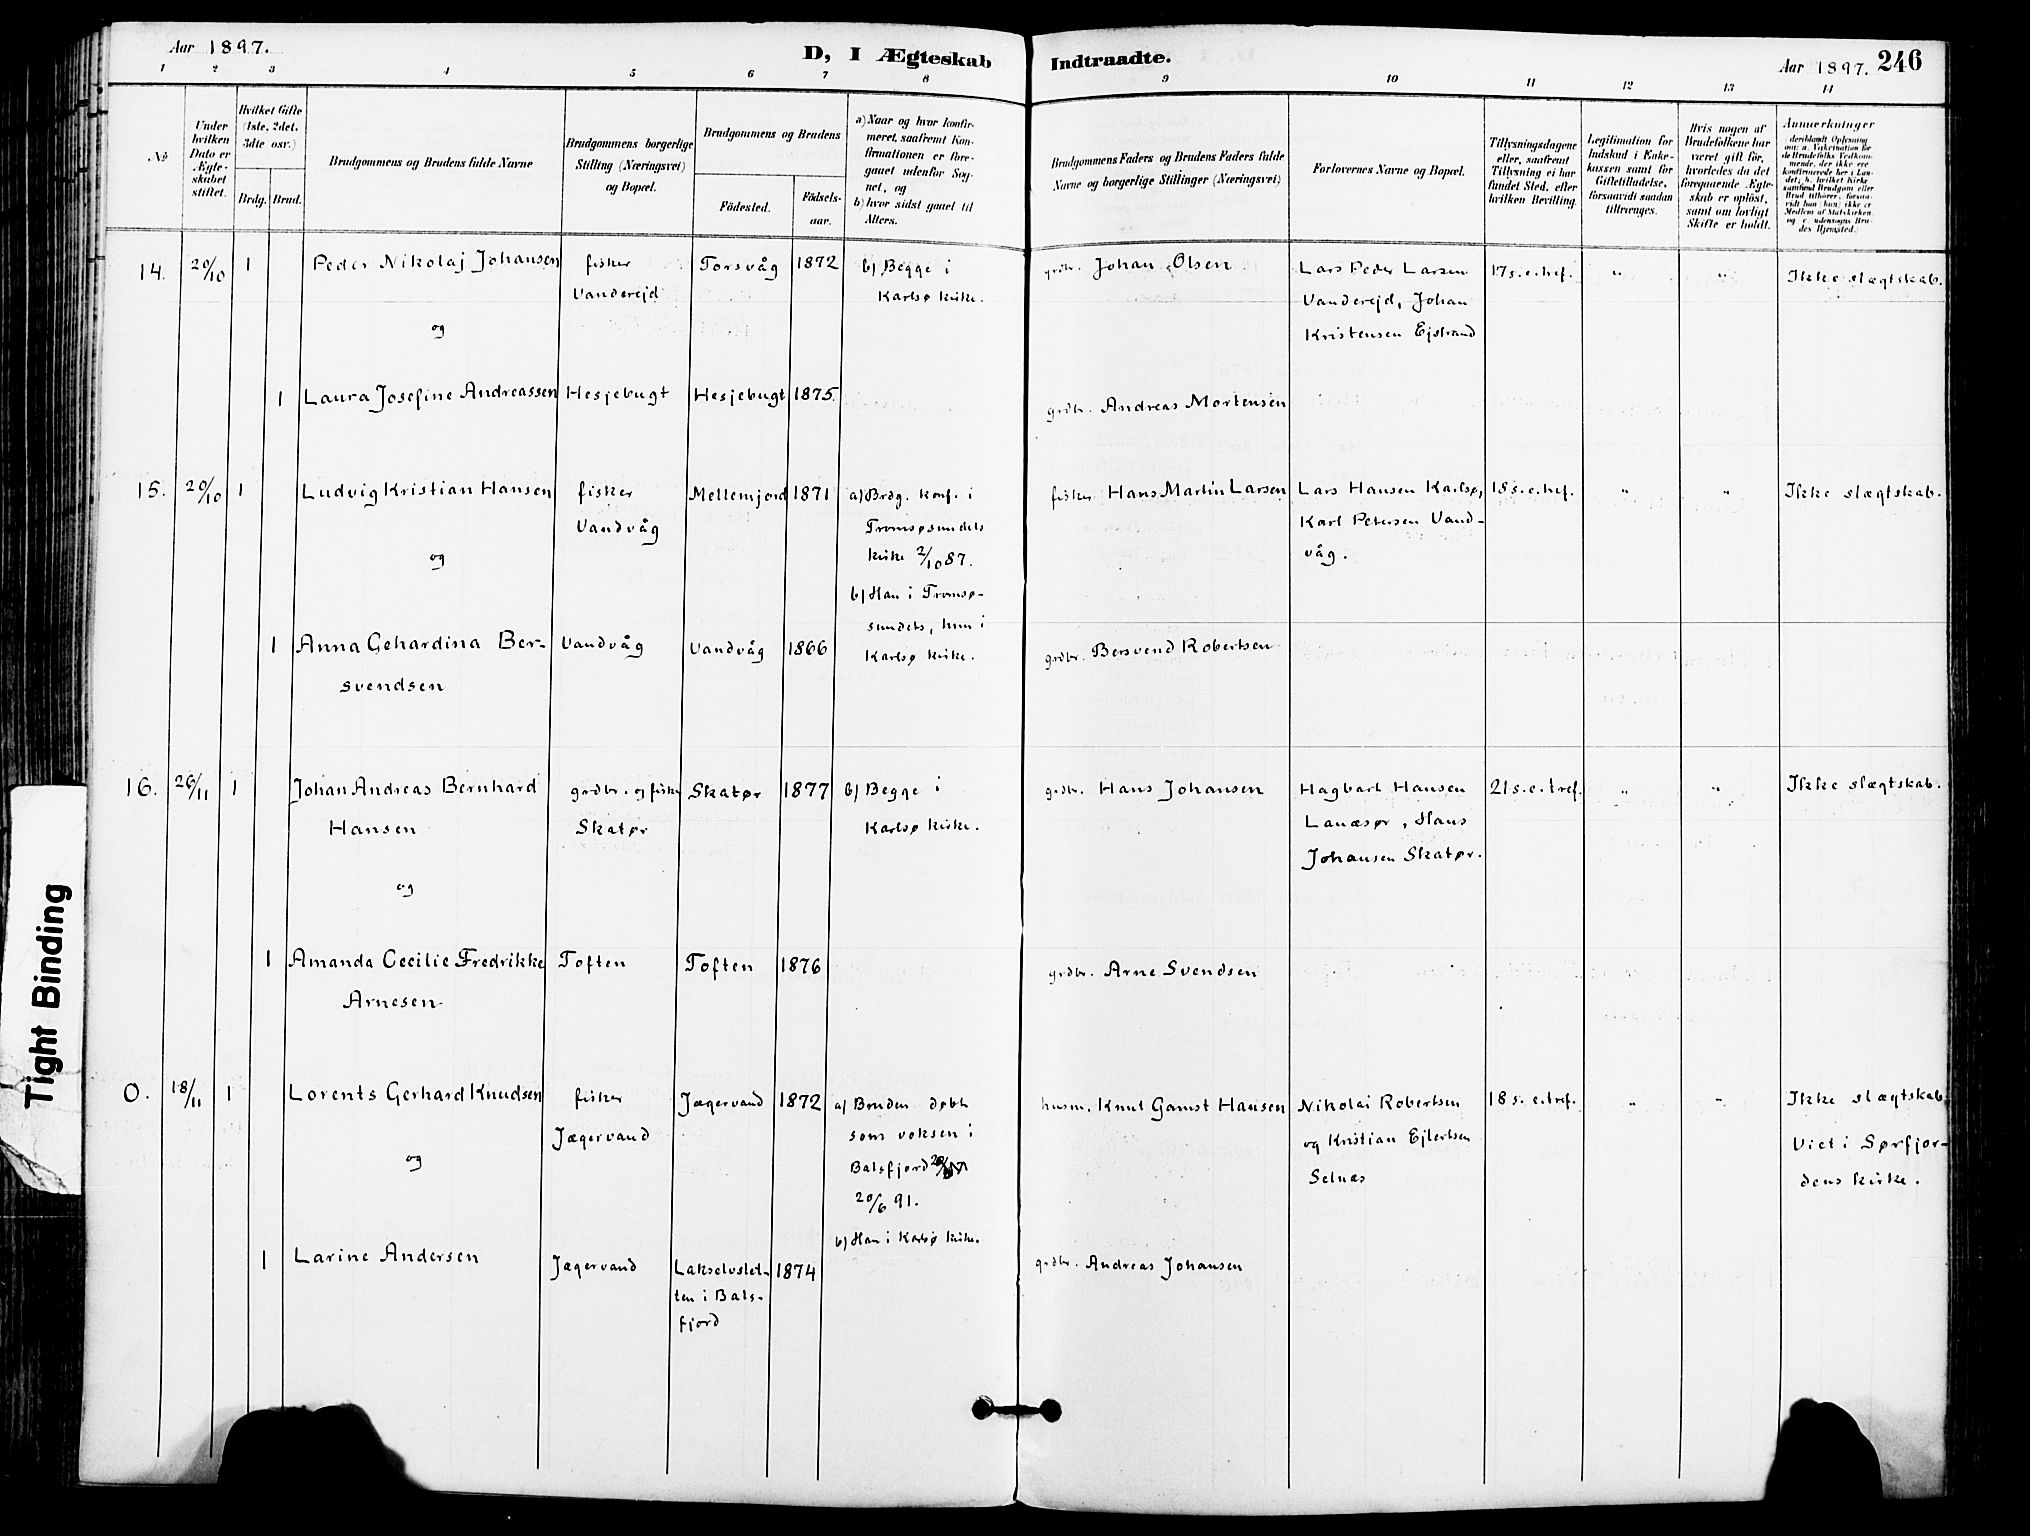 Aar 1897.
D, I Ægteskab Indtraadte.
Aar 1897. 246
1 2 3 4 5 6 7 8 9 10 11 12 13 14
No
Under hvilken Dato er Ægteskabet stiftet.
Hvilket Gifte (1ste, 2det, 3dte osv.)
Brdg. Brud.
Brudgommens og Brudens fulde Navne
Brudgommens borgerlige Stilling (Næringsvei) og Bopæl.
Brudgommens og Brudens
Födested.
Födselsaar.
a) Naar og hvor konfirmeret, saafremt Konfirmationen er foregaaet udenför Sognet, og
b) hvor sidst gaaet til Alters.
Brudgommens Faders og Brudens Faders fulde Navne og borgerlige Stillinger (Næringsvei)
Forlovernes Navne og Bopæl.
Tillysningsdagene eller, saafremt Tillysning ei har fundet Sted, efter hvilken Bevilling.
Legitimation for Indskud i Enkekassen samt for Giftetilladelse, forsaavidt saadan tiltrænges.
Hvis nogen af Brudefolkene har været gift för, hvorledes da det foregaaende Ægteskab er oplöst, samt om lovligt Skifte er holdt.
Anmærkninger
14. 20/10 1 Peder Nikolaj Johansen fisker Torsvåg 1872 b) Begge i grdbr. Johan Olsen Lars Peder Larsen 17 s.e.tref. " " Ikke slægtskab.
Vanderejd Karlsø kirke. Vanderejd, Johan
og Kristensen Ejstrand
1 Laura Josefine Andreassen Hesjebugt Hesjebugt 1875. grdbr. Andreas Mortensen
15. 20/10 1 Ludvig Kristian Hansen fisker Mellemjord 1871 a) Brdg. konf. i fisker Hans Martin Larsen Lars Hansen Karlsø, 18 s.e.tref. " " Ikke slægtskab.
Vandvåg Tromsøsundets Karl Petersen Vand-
og kirke 2/10 87. våg.
b) Han i Tromsø-
sundets, hun i
1 Anna Gehardina Ber- Vandvåg Vandvåg 1866 Karlsø kirke. grdbr. Bersvend Robertsen
svendsen
16. 26/11 1 Johan Andreas Bernhard grdbr. og fisker Skatør 1877 b) Begge i grdbr. Hans Johansen Hagbart Hansen 21 s.e.tref. " " Ikke slægtskab.
Hansen Skatør Karlsø kirke. Lanæsør, Hans
Johansen Skatør.
og
1 Amanda Cecilie Fredrikke Toften Toften 1876 grdbr. Arne Svendsen
Arnesen
0. 18/11 1 Lorents Gerhard Knudsen fisker Jægervand 1872 a) Bruden døbt husm. Knut Gamst Hansen Nikolai Robertsen 18 s.e.tref. " " Ikke slægtskab
Jægervand som voksen i og Kristian Ejlertsen Viet i Sørfjor-
og Balsfjord Selnæs dens kirke.
20/6 91.
b) Han i Karlsø kirke.
1 Larine Andersen Jægervand Lakselvslet- 1874 grdbr. Andreas Johansen
ten i Bals-
fjord
Tight Binding